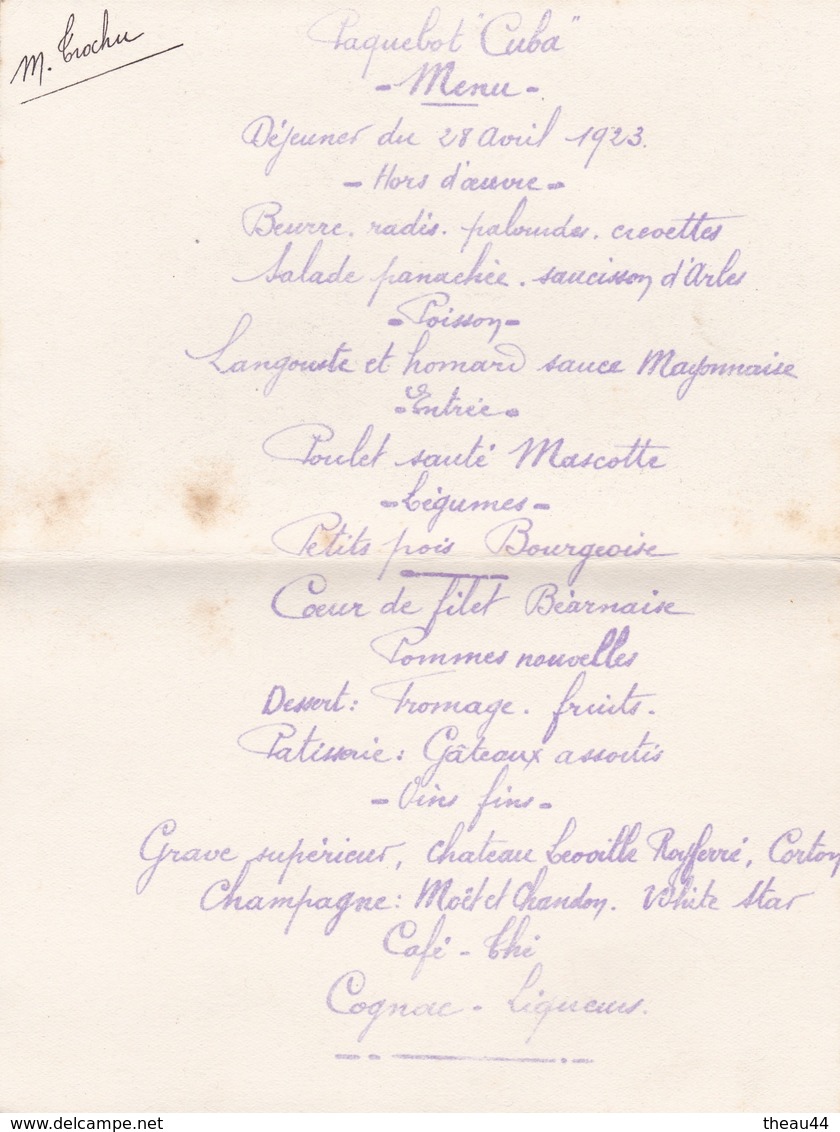 M. Trochu
Paquebot "Cuba"
- Menu -
Déjeuner du 28 Avril 1923.
- Hors d'œuvre -
Beurre. radis. palourdes. crevettes
Salade panachée. saucisson d'Arles
- Poisson -
Langouste et homard sauce Mayonnaise
- Entrée -
Poulet sauté Mascotte
- Légumes -
Petits pois Bourgeoise
Cœur de filet Béarnaise
Pommes nouvelles
Dessert: Fromage. fruits.
Patisserie: Gâteaux assortis
- Vins fins -
Grave supérieur, chateau Leoville Poyferré, Corton
Champagne: Moët et Chandon. White Star
Café - Thé
Cognac - Liqueurs.
delcampe.net
theau44